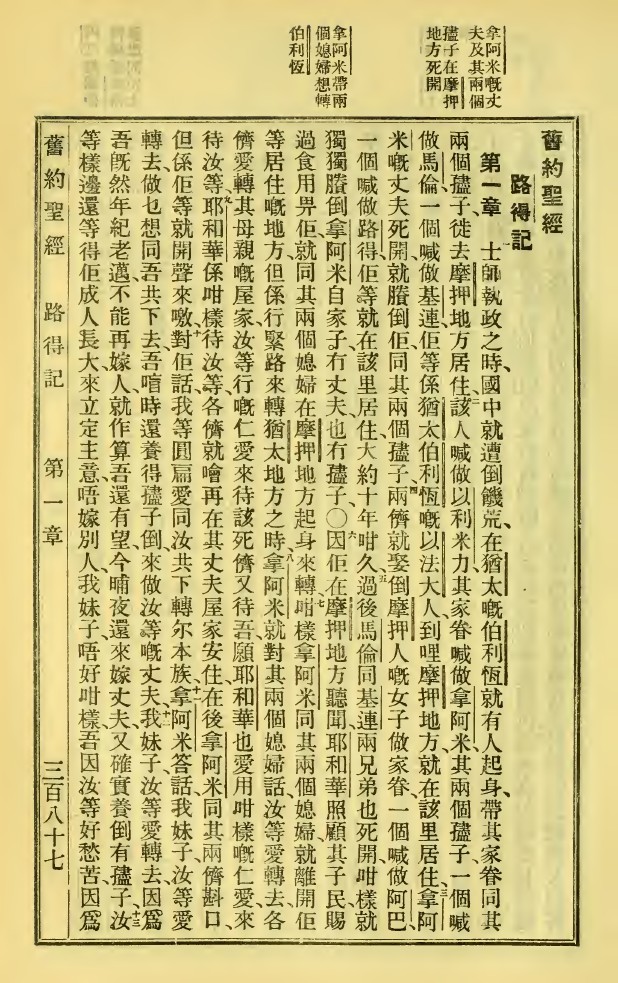 拿阿米嘅丈
夫及其兩個
孻子在摩押
地方死開
拿阿米帶兩
個媳婦想轉
伯利恆
舊約聖經
路得記
第一章 一士師執政之時、國中就遭倒饑荒、在猶太嘅伯利恆就有人起身、帶其家眷同其
兩個孻子、徙去摩押地方居住、二該人喊做以利米力、其家眷喊做拿阿米、其兩個孻子、一個喊
做馬倫、一個喊做基連、佢等係猶太伯利恆嘅以法大人、到哩摩押地方、就在該里居住、三拿阿
米嘅丈夫死開、就賸倒佢同其兩個孻子、四兩儕就娶倒摩押人嘅女子做家眷、一個喊做阿巴、
一個喊做路得、佢等就在該里居住、大約十年咁久、五過後馬倫同基連兩兄弟也死開、咁樣就
獨獨賸倒拿阿米自家子冇丈夫也冇孻子、〇六因佢在摩押地方聽聞耶和華照顧其子民、賜
過食用畀佢、就同其兩個媳婦在摩押地方起身來轉、七咁樣拿阿米同其兩個媳婦就離開佢
等居住嘅地方、但係行緊路來轉猶太地方之時、八拿阿米就對其兩個媳婦話、汝等愛轉去、各
儕愛轉其母親嘅屋家、汝等行嘅仁愛來待該死儕又待吾、願耶和華也愛用咁樣嘅仁愛、來
待汝等、九耶和華係咁樣待汝等、各儕就噲再在其丈夫屋家安住、在後拿阿米同其兩儕斟口、
但係佢等就開聲來噭、十對佢話、我等圓扁愛同汝共下轉尔本族、十一拿阿米答話、我妹子、汝等愛
轉去、做乜想同吾共下去、吾喧時還養得孻子倒、來做汝等嘅丈夫、十二我妹子、汝等愛轉去、因爲
吾旣然年紀老邁、不能再嫁人、就作算吾還有望、今晡夜還來嫁丈夫、又確實養倒有孻子、十三汝
等樣邊還等得佢成人長大、來立定主意、唔嫁別人、我妹子、唔好咁樣、吾因汝等好愁苦、因爲
舊約聖經 路得記 第一章 三百八十七